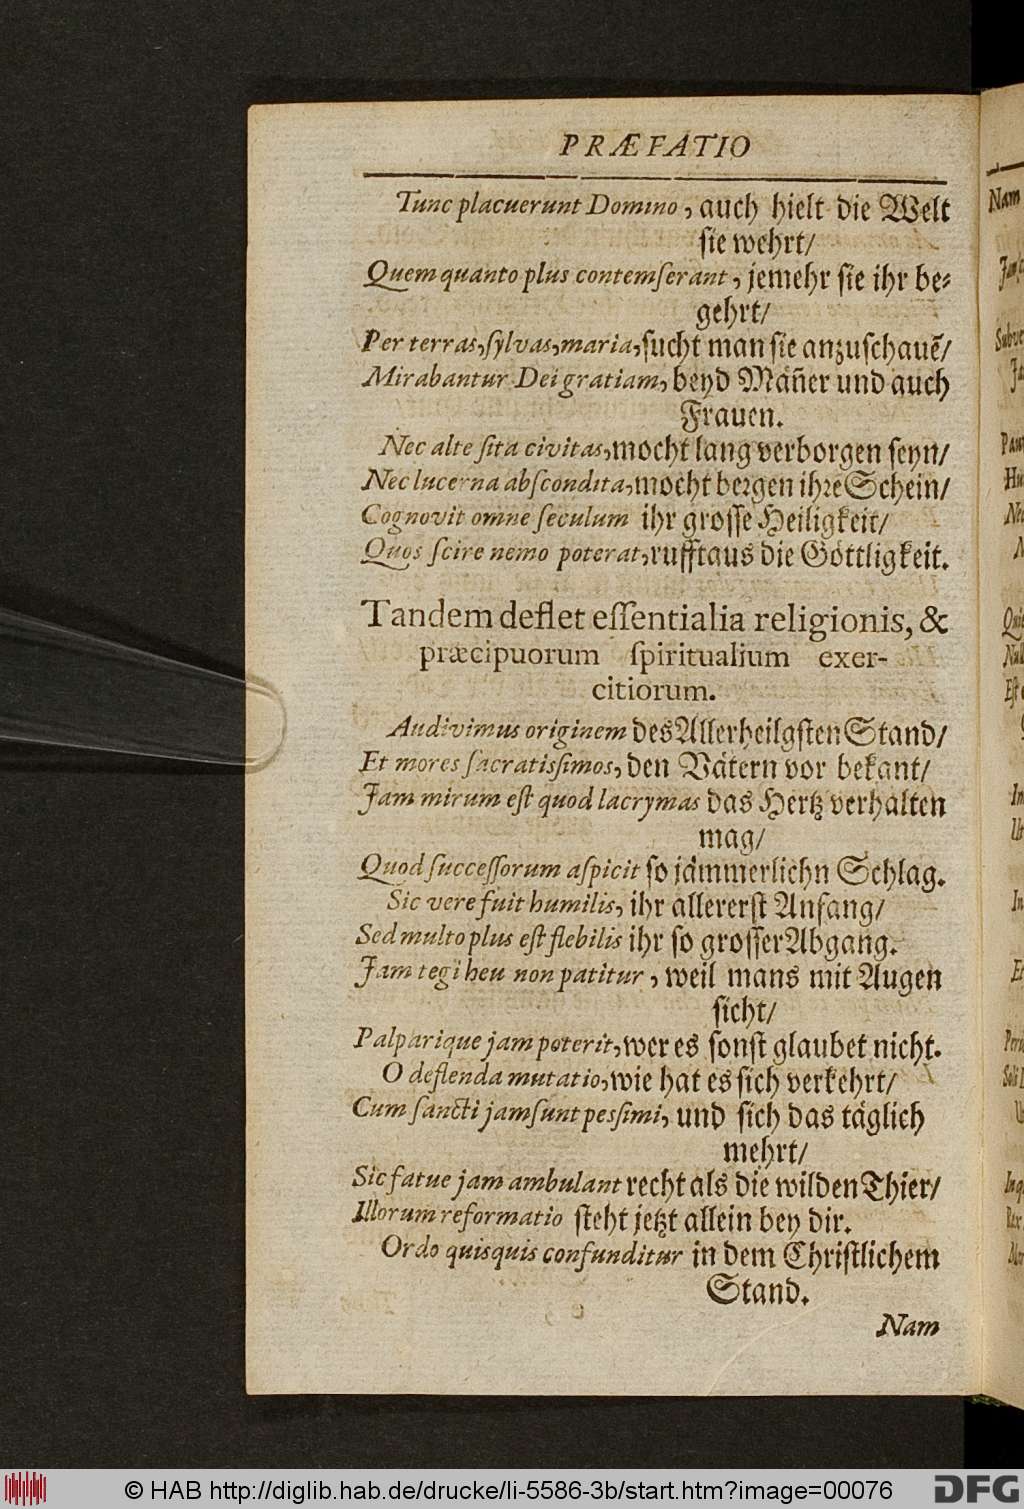 PRÆFATIO
Tunc placuerunt Domino, auch hielt die Welt
sie wehrt/
Quem quanto plus contemserant, jemehr sie ihr be-
gehrt/
Per terras, sylvas, maria, sucht man sie anzuschauẽ/
Mirabantur Dei gratiam, beyd Mäñer und auch
Frauen.
Nec alte sita civitas, mocht lang verborgen seyn/
Nec lucerna abscondita, mocht bergen ihre Schein/
Cognovit omne seculum ihr grosse Heiligkeit/
Quos scire nemo poterat, rufft aus die Göttligkeit.
Tandem deflet essentialia religionis, &
præcipuorum spiritualium exer-
citiorum.
Audivimus originem des Allerheilgsten Stand/
Et mores sacratissimos, den Vätern vor bekant/
Jam mirum est quod lacrymas das Hertz verhalten
mag/
Quod successorum aspicit so jämmerlichn Schlag.
Sic vere fuit humilis, ihr allererst Anfang/
Sed multo plus est flebilis ihr so grosser Abgang.
Jam tegi heu non patitur, weil mans mit Augen
sicht/
Palparique jam poterit, wer es sonst glaubet nicht.
O deflenda mutatio, wie hat es sich verkehrt/
Cum sancti jam sunt pessimi, und sich das täglich
mehrt/
Sic fatue jam ambulant recht als die wilden Thier/
Illorum reformatio steht jetzt allein bey dir.
Ordo quisquis confunditur in dem Christlichem
Stand.
Nam
© HAB http://diglib.hab.de/drucke/li-5586-3b/start.htm?image=00076
DFG